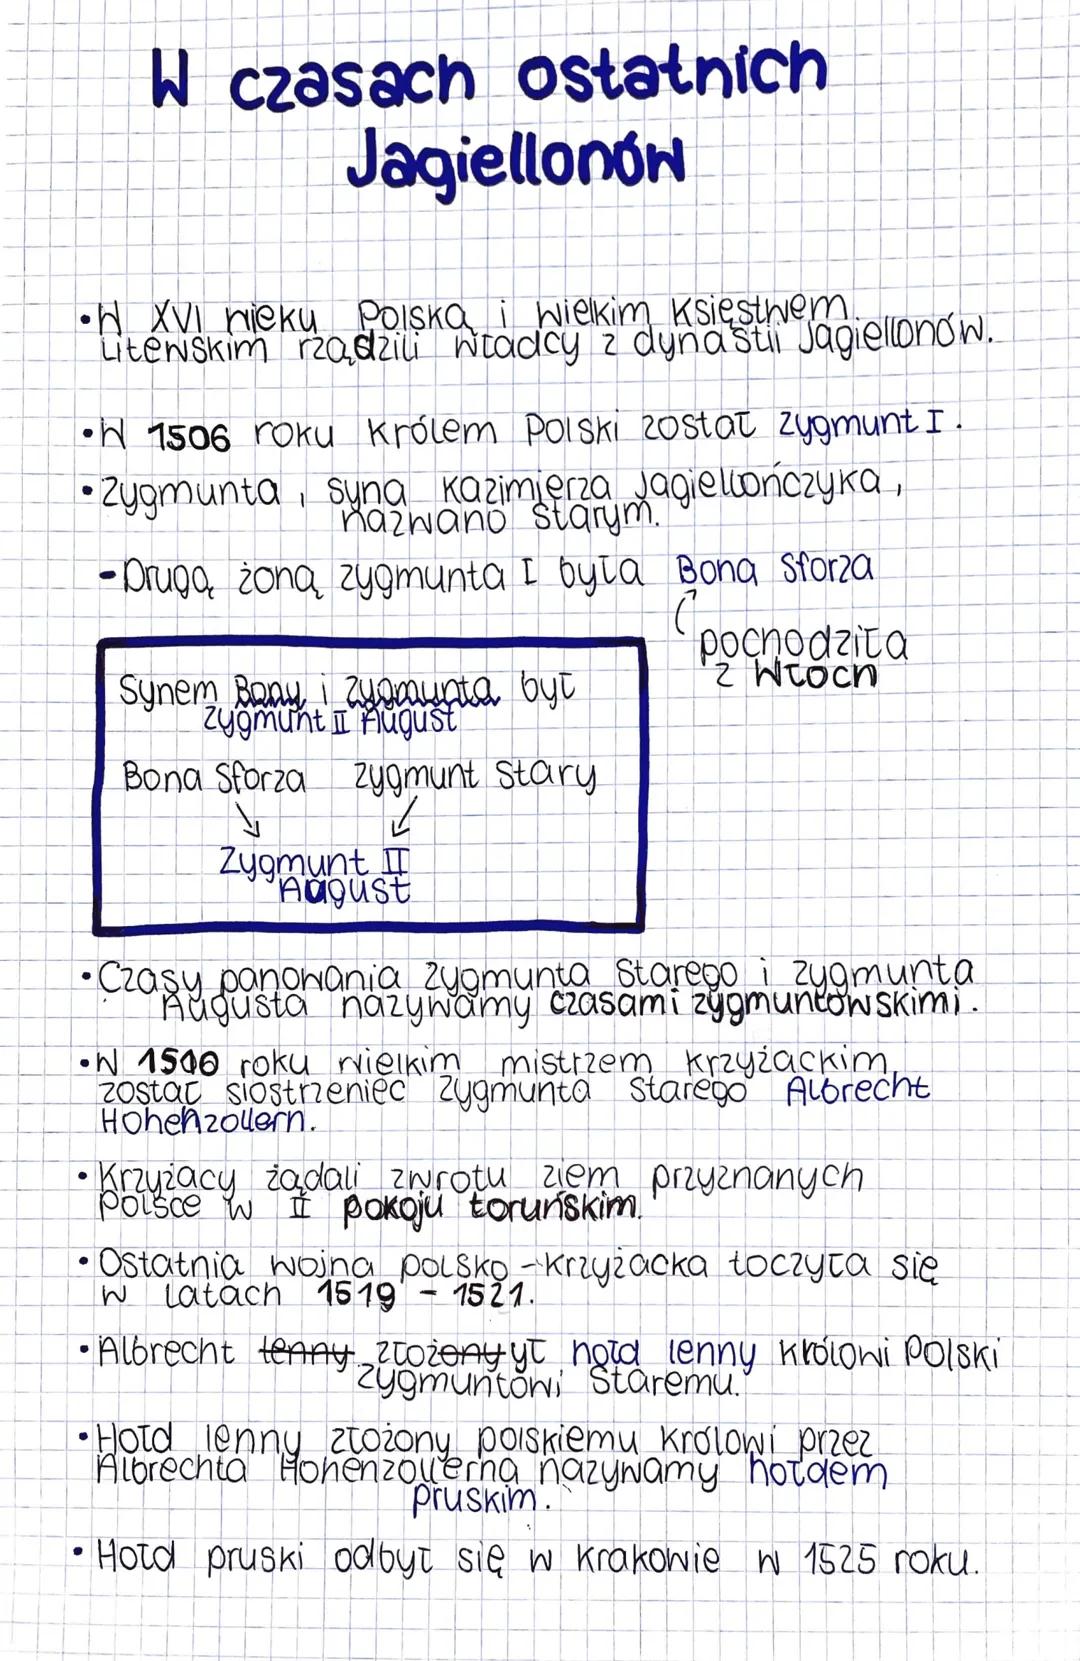 W czasach ostatnich
Jagiellonów
• W XVI wieku Polską i Wielkim Księstwem
Litewskim rządzili władcy z dynastii Jagiellonów.
• W 1506 roku królem Polski został Zygmunt I.
• Zygmunta, syna Kazimierza Jagiellończyka,
nazwano Starym.
- Drugą żoną Zygmunta I była Bona Sforza
pochodziła
z Włoch
Synem Bony i Zygmunta był
Zygmunt II August
Bona Sforza Zygmunt Stary
Zygmunt II
August
• Czasy panowania Zygmunta Starego i Zygmunta
Augusta nazywamy czasami zygmuntowskimi.
• W 1510 roku wielkim mistrzem krzyżackim
został siostrzeniec Zygmunta Starego Albrecht
Hohenzollern.
• Krzyżacy żądali zwrotu ziem przyznanych
Polsce w II pokoju toruńskim.
• Ostatnia wojna polsko-krzyżacka toczyła się
w latach 1519 - 1521.
• Albrecht lenny złożonyył hołd lenny królowi Polski
Zygmuntowi Staremu.
• Hołd lenny złożony polskiemu królowi przez
Albrechta Hohenzollerna nazywamy hołdem
pruskim.
• Hołd pruski odbył się w Krakowie w 1525 roku.